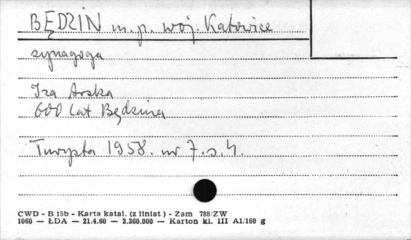 BĘDZIN m.p. woj. Katowice
synagoga
Iza Arska
600 lat Będzina
Turysta 1958. nr 7. s. 4.
CWD - B 15b - Karta katal. (z liniat.) - Zam 788/ZW
1060 — ŁDA — 21.4.60 — 2.360.000 — Karton kl. III A1/160 g